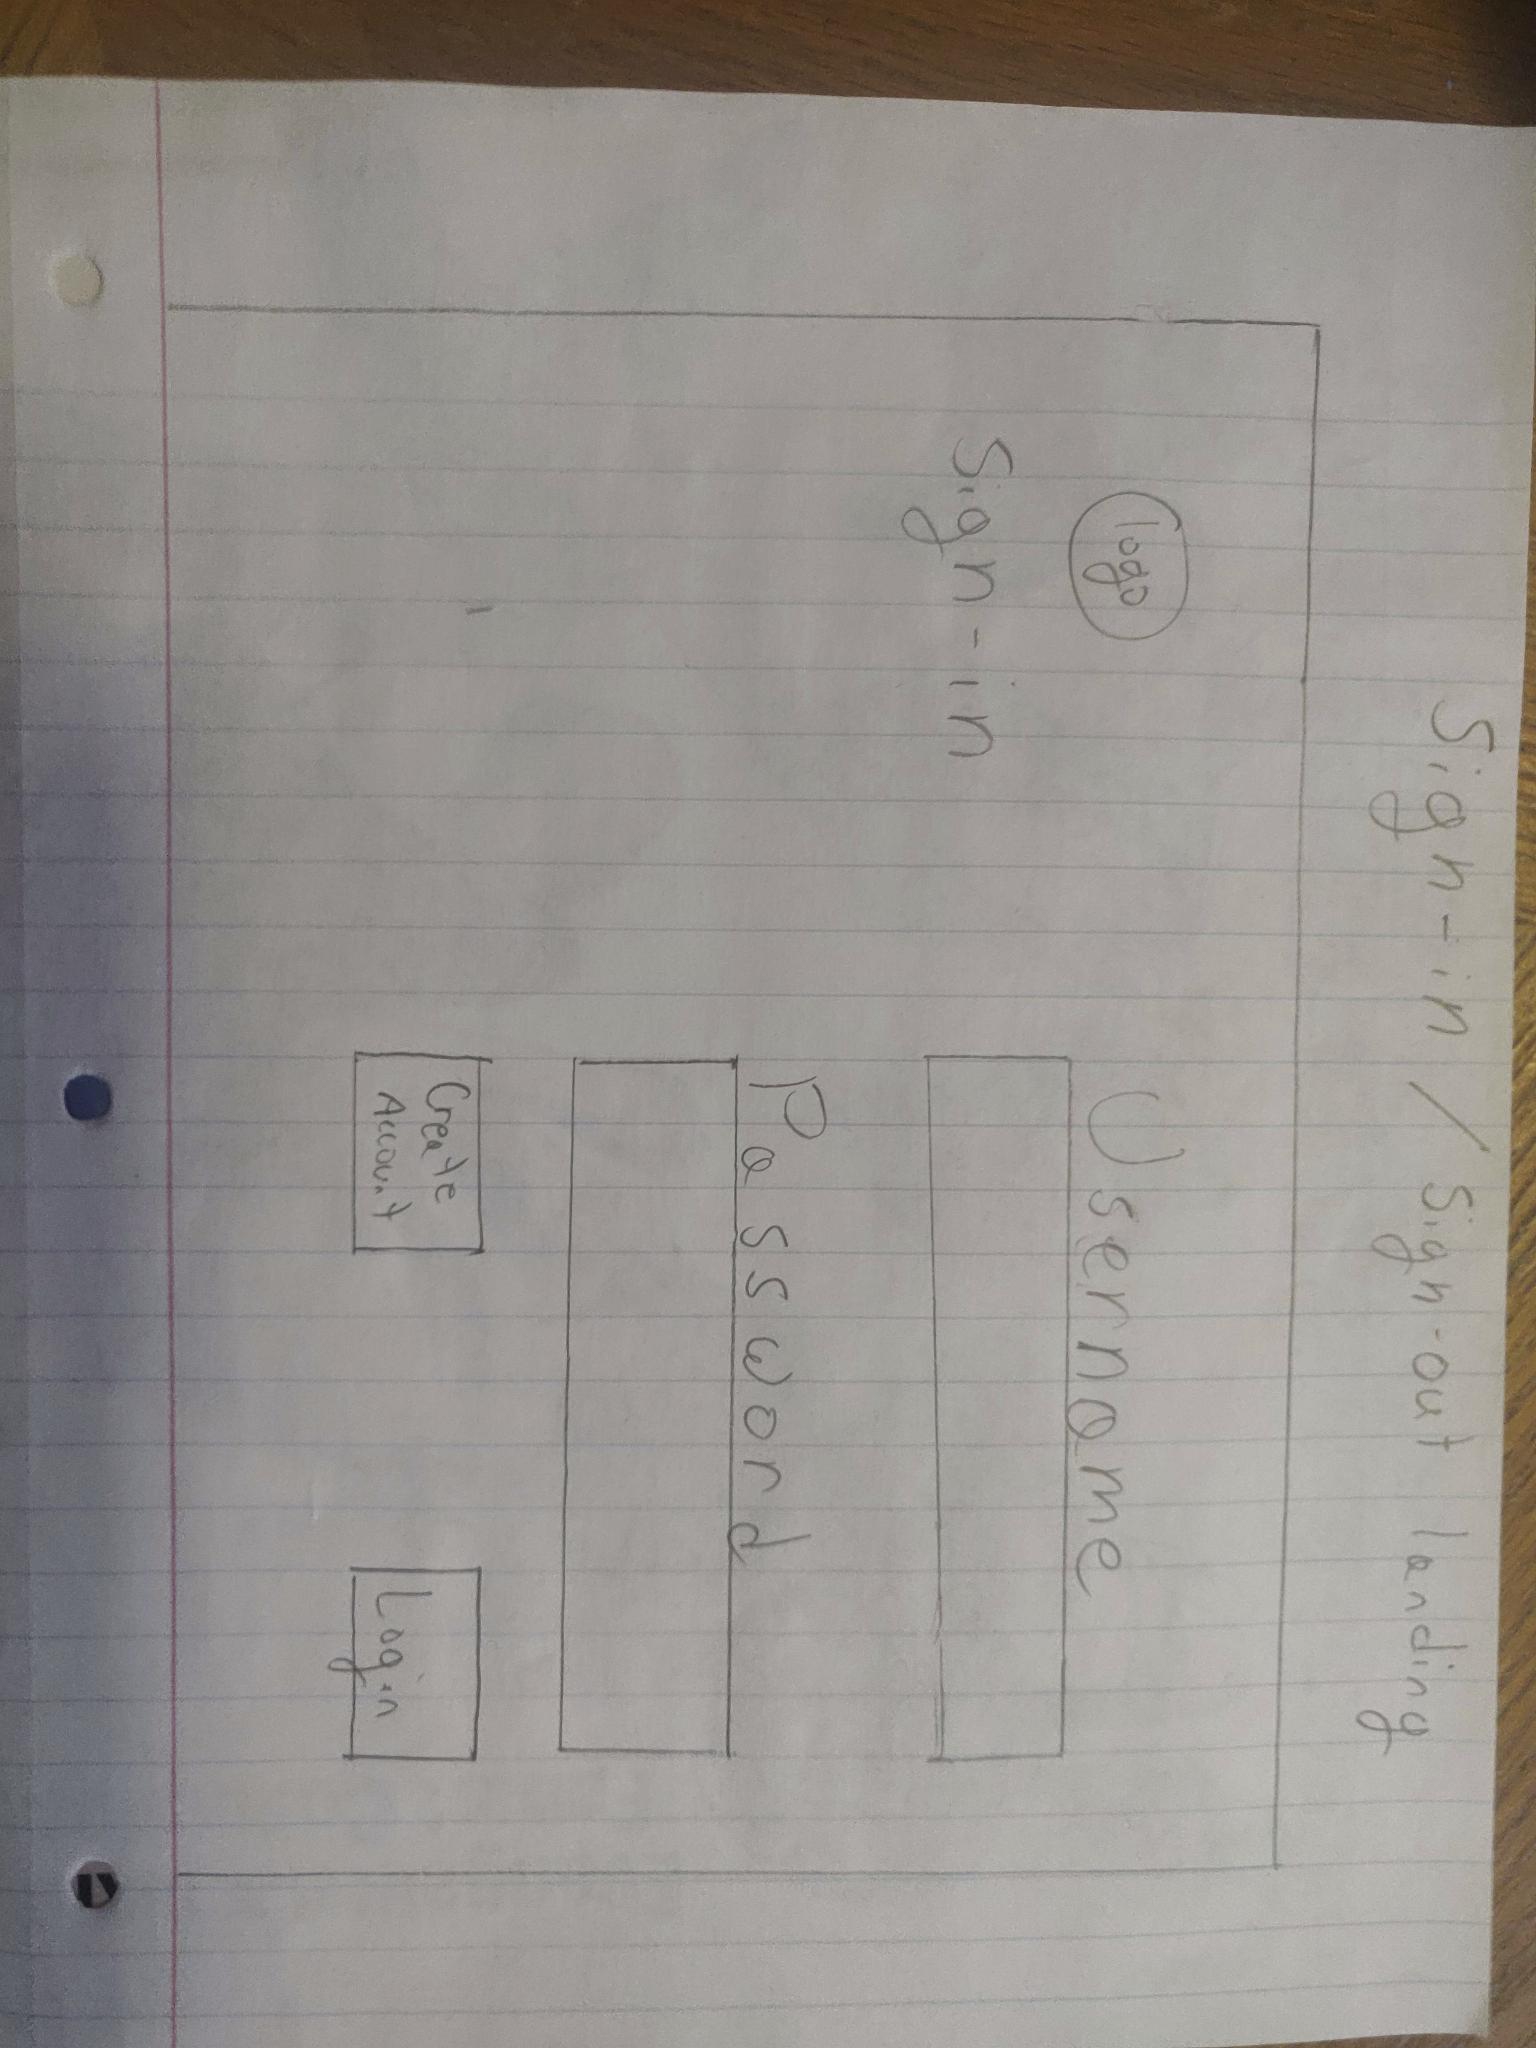 Sign-in / Sign-out landing
logo
Sign-in
Username
Password
Create
Account
Login